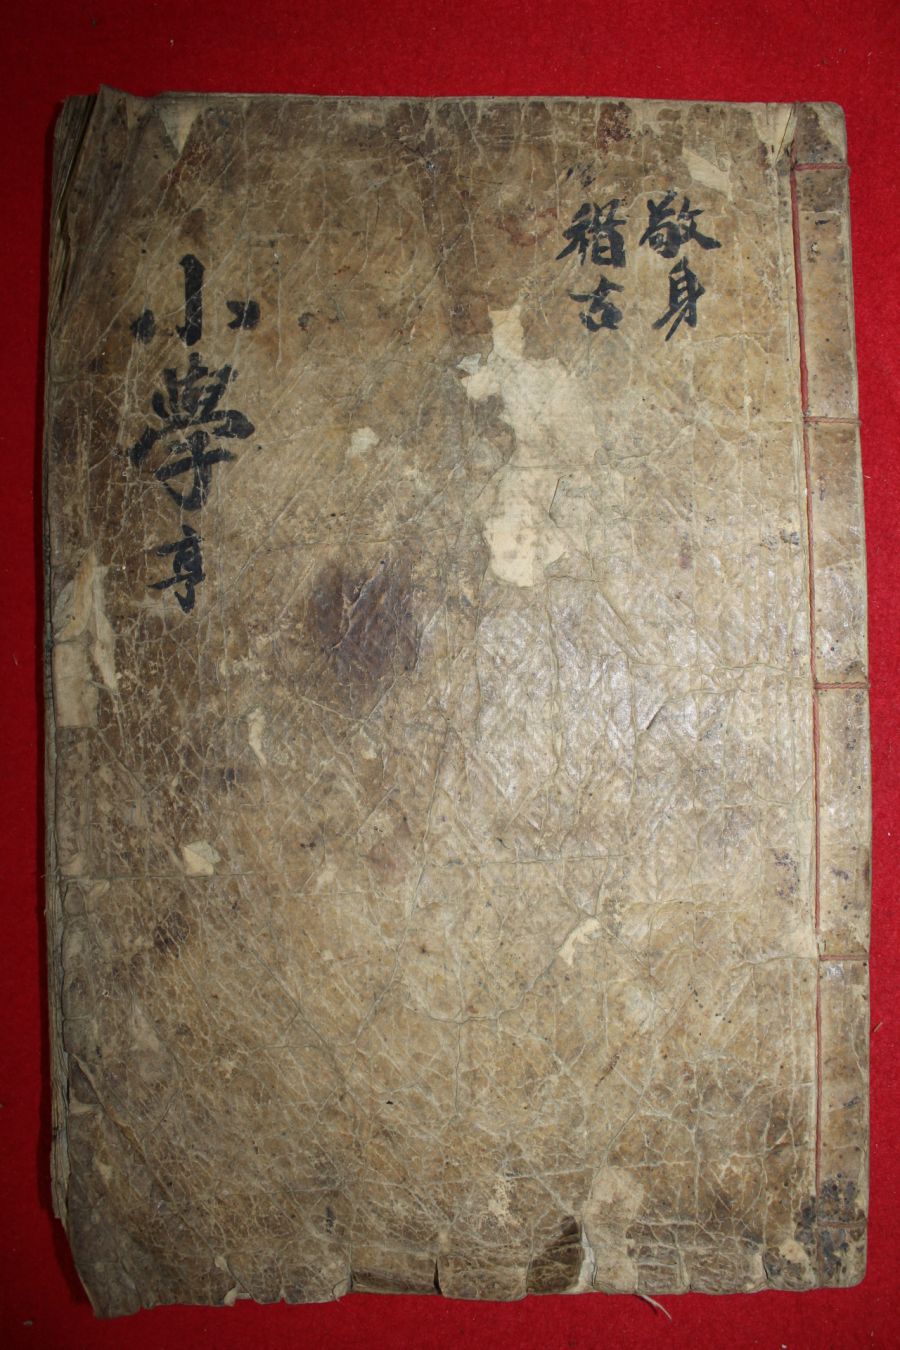 敬身
稽古
小學 亨